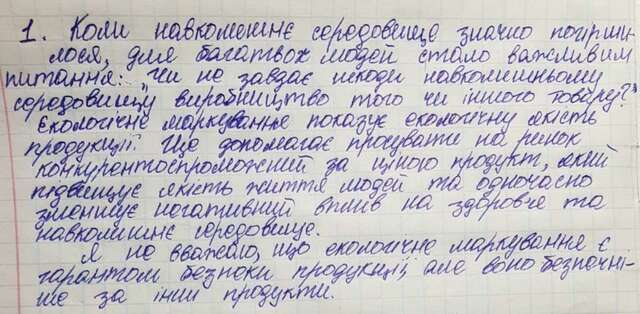 1. Коли навколишнє середовище значно погірши-
лося, для багатьох людей стало важливим
питання: "Чи не завдає шкоди навколишньому
середовищу виробництво того чи іншого товару?"
Екологічне маркування показує екологічну якість
продукції. Це допомагає просувати на ринок
конкурентоспроможний за ціною продукт, який
підвищує якість життя людей та одночасно
зменшує негативний вплив на здоров'є та
навколишнє середовище.
Я не вважаю, що екологічне маркування є
гарантом безпеки продукції, але воно безпечні-
ше за інши продукти.